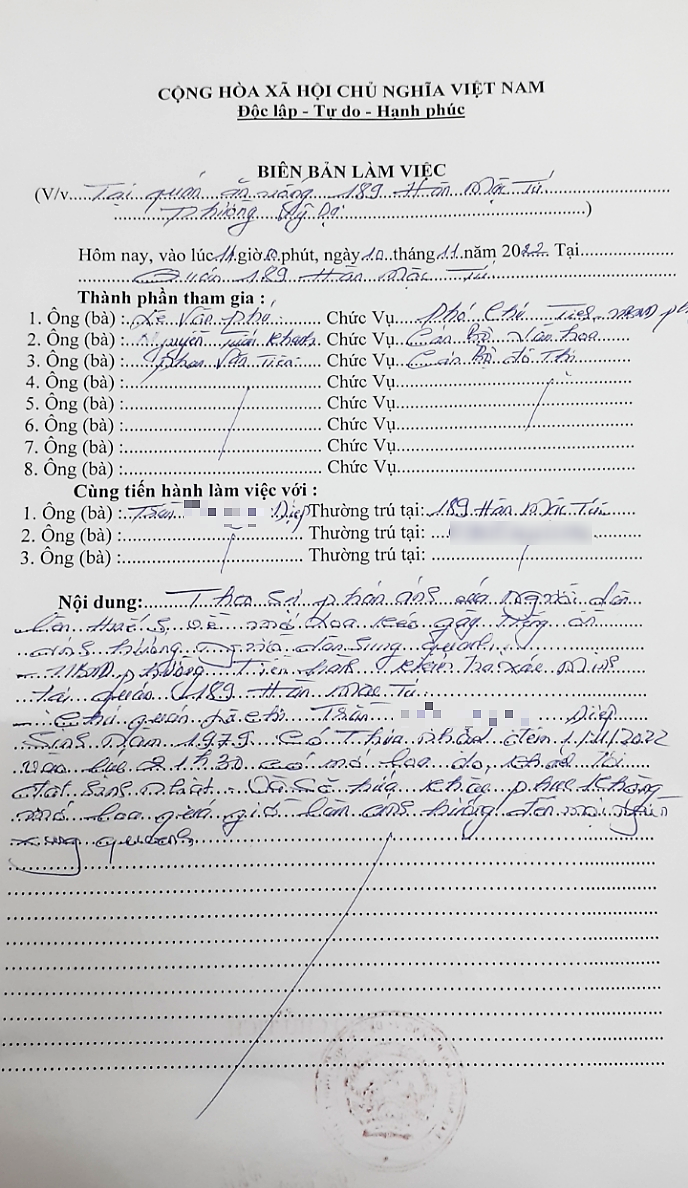 CỘNG HÒA XÃ HỘI CHỦ NGHĨA VIỆT NAM
Độc lập - Tự do - Hạnh phúc
BIÊN BẢN LÀM VIỆC
(V/v.....Tại quán ăn sáng 189 Hàn Mặc Tử
Phường Vỹ Dạ.....)
Hôm nay, vào lúc 14 giờ 0 phút, ngày 10 tháng 11 năm 2022. Tại.....
Quán 189 Hàn Mặc Tử
Thành phần tham gia :
1. Ông (bà) : Lê Văn Phú Chức Vụ Phó Chủ Tịch UBND
2. Ông (bà) : Nguyễn Tuấn Khanh Chức Vụ Cán Bộ Văn hoa
3. Ông (bà) : Phan Văn Tiến Chức Vụ Cán Bộ đô Thị
4. Ông (bà) :..... Chức Vụ.....
5. Ông (bà) :..... Chức Vụ.....
6. Ông (bà) :..... Chức Vụ.....
7. Ông (bà) :..... Chức Vụ.....
8. Ông (bà) :..... Chức Vụ.....
Cùng tiến hành làm việc với :
1. Ông (bà) : Trần Diệp Thường trú tại: 189 Hàn Mặc Tử
2. Ông (bà) :..... Thường trú tại: .....
3. Ông (bà) :..... Thường trú tại:.....
Nội dung: Theo sự phản ánh của người dân
lên Huế S, về mở loa kéo gây tiếng ồn
ảnh hưởng người dân xung quanh
- UBND phường Tiến hành kiểm tra xác minh
tại quán 189 Hàn Mặc Tử
- Chủ quán là chị Trần Diệp
Sinh năm 1979 có Thừa nhận đêm 1/11/2022
vào lúc 21h30 có mở loa do khách Tôi
đặt sinh nhật. Và sẽ hứa khắc phục không
mở loa quá giờ làm ảnh hưởng đến mọi người
xung quanh